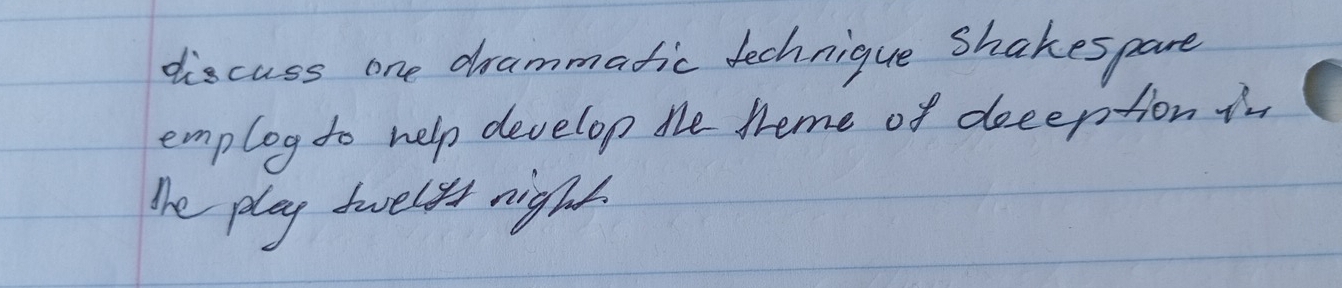 discuss one drammatic technique Shakespare
employ to help develop the theme of deeeption in
the play twelfth night.